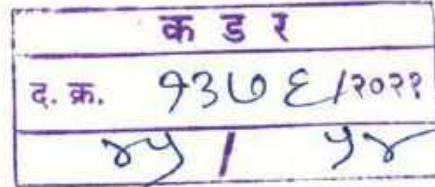 क ड र
द. क्र. १३७६/२०२१
४५ / ५४